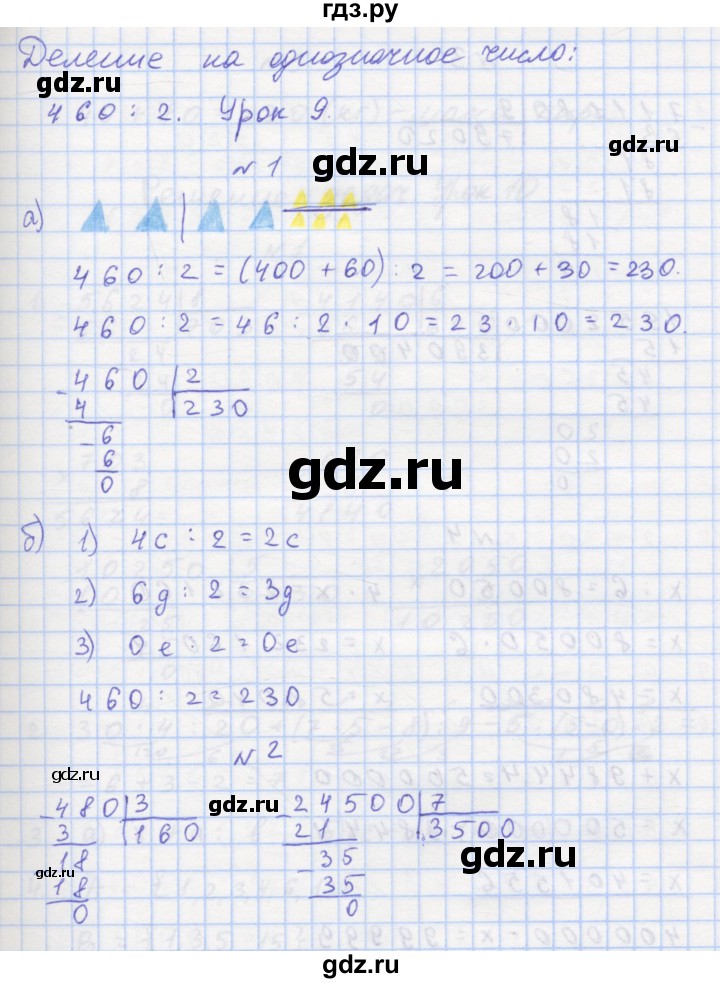 гдз.ру
Деление на однозначное число:
gdz.ru
460 : 2. Урок 9.
№ 1
gdz.ru
а)
460 : 2 = (400 + 60) : 2 = 200 + 30 = 230.
460 : 2 = 46 : 2 · 10 = 23 · 10 = 230.
gdz.ru
- 460 | 2
4 | 230
- 6
6
0
gdz.ru
б) 1) 4с : 2 = 2с
2) 6д : 2 = 3д
3) 0е : 2 = 0е
gdz.ru
460 : 2 = 230
№ 2
gdz.ru
gdz.ru
gdz.ru
- 480 | 3
3 | 160
18
- 18
0
- 24500 | 7
21 | 3500
- 35
35
0
gdz.ru
gdz.ru
gdz.ru